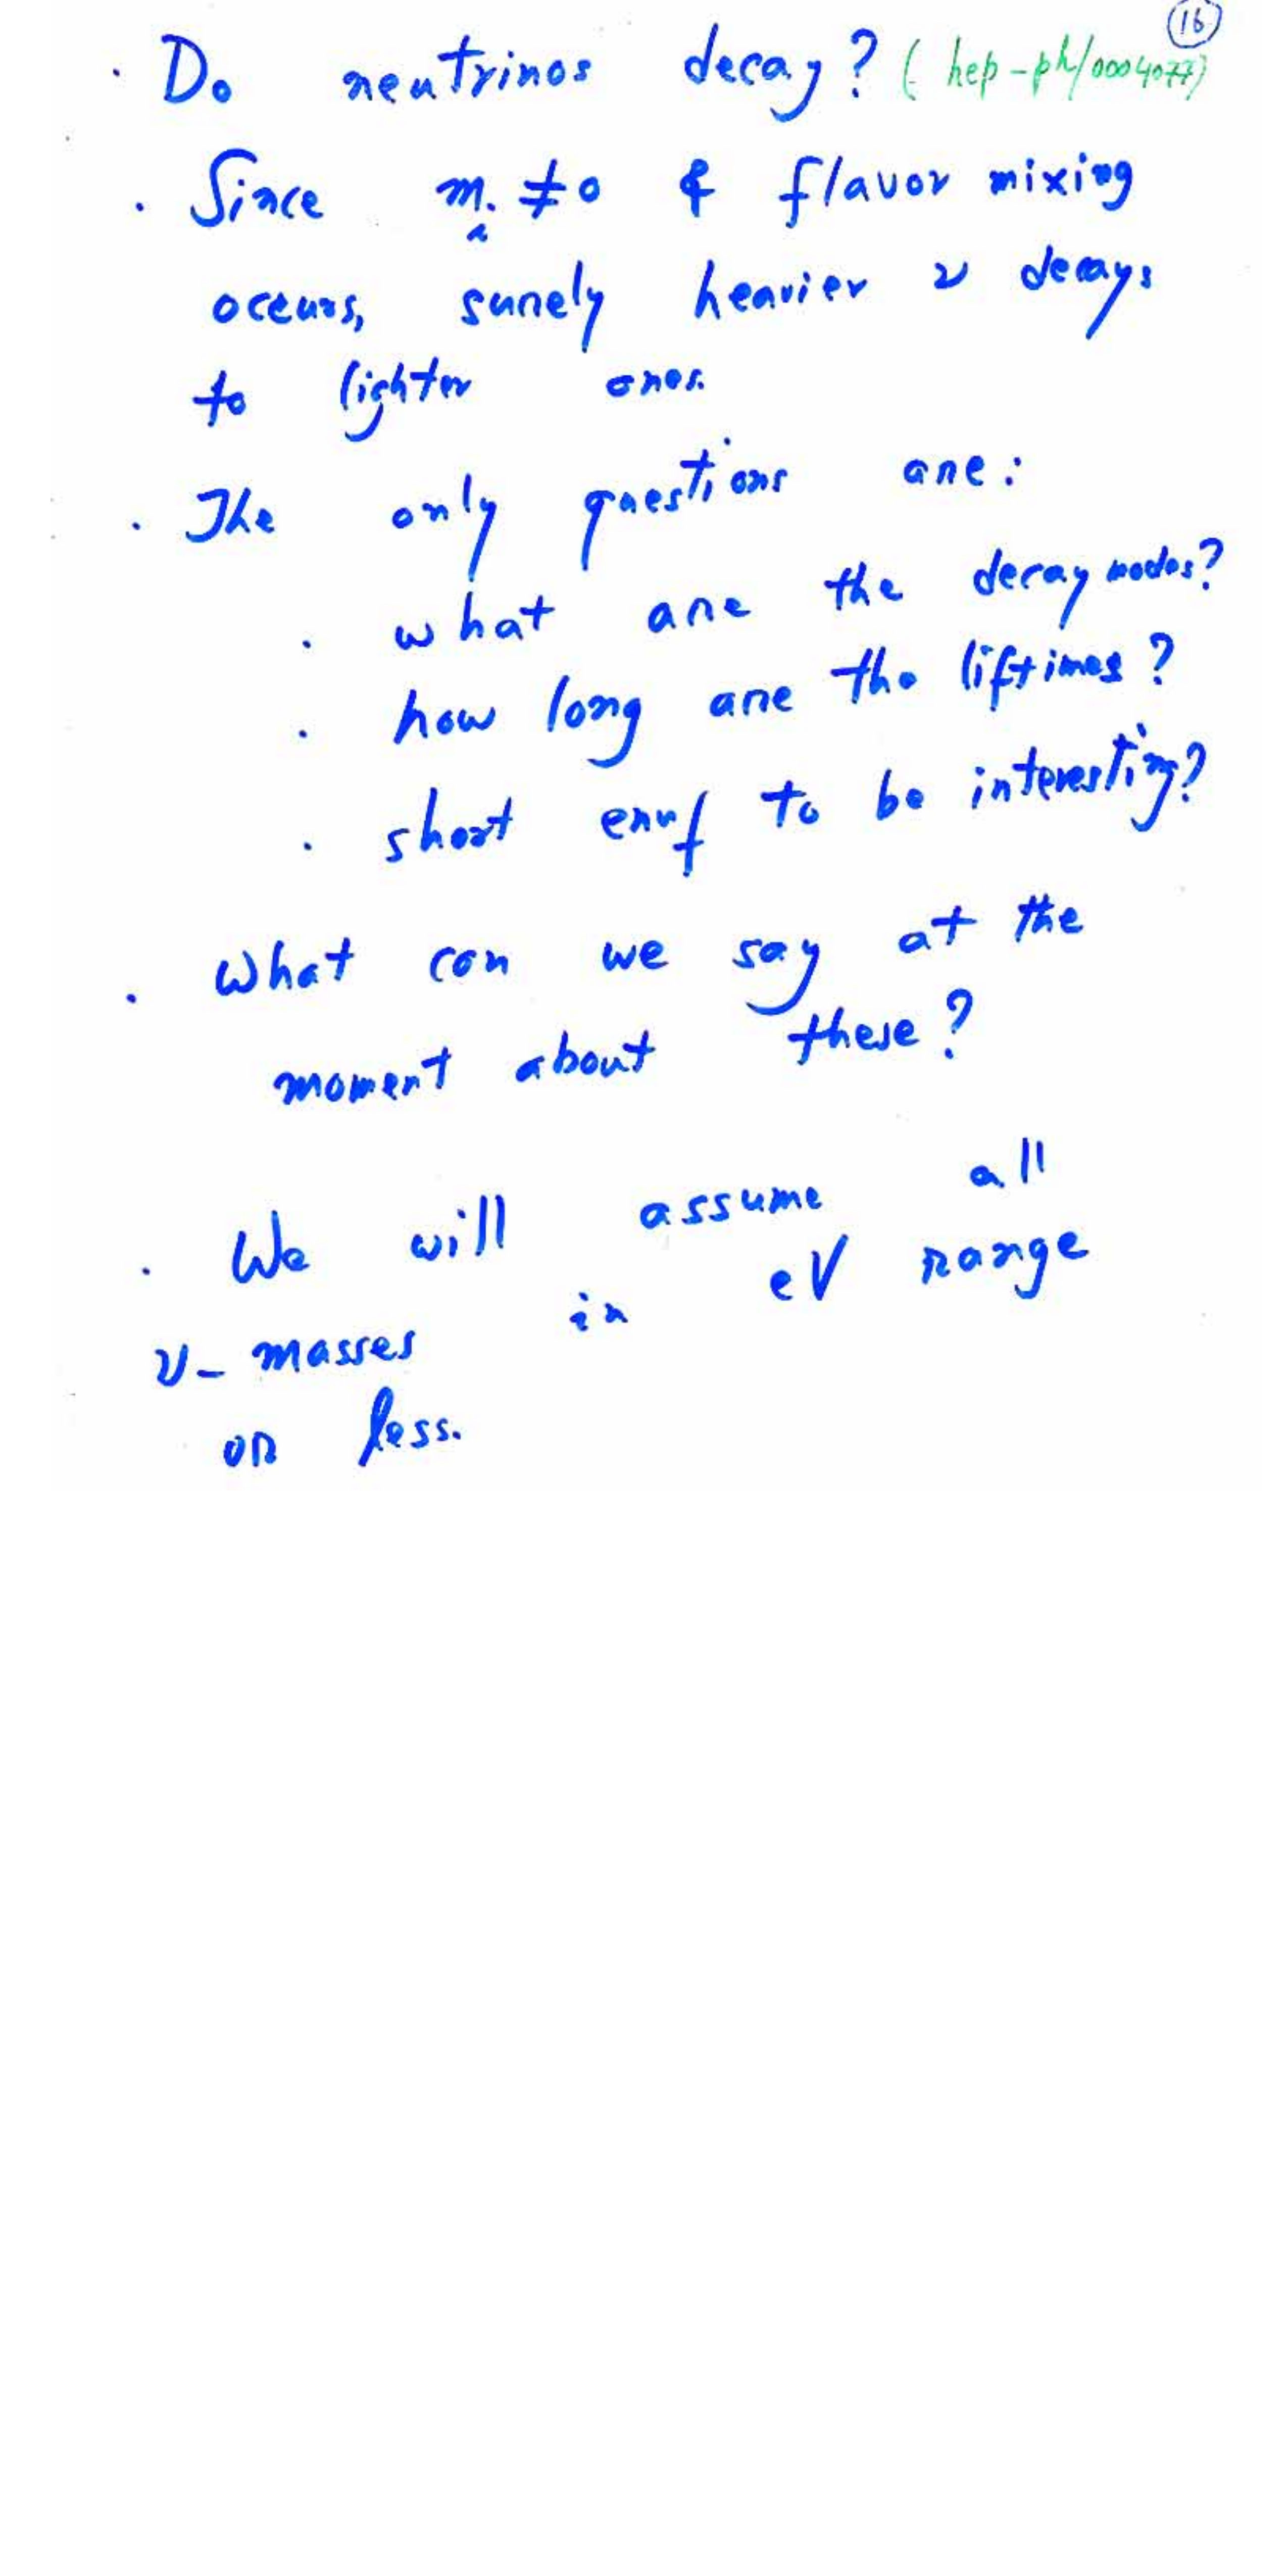 16
· Do neutrinos decay? (hep-ph/0004077)
· Since mᵢ ≠ 0 & flavor mixing
occurs, surely heavier ν decays
to lighter ones.
· The only questions are:
· what are the decay modes?
· how long are the liftimes?
· short enuf to be interesting?
· What can we say at the
moment about these?
· We will assume all
ν- masses in eV range
or less.